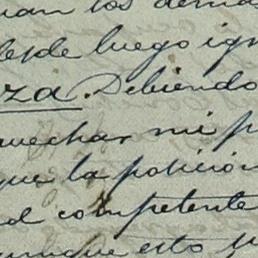 uan los demas
desde luego ign
za. Debiendo
vechar mi p
que la posicion
d competente
unque esto p